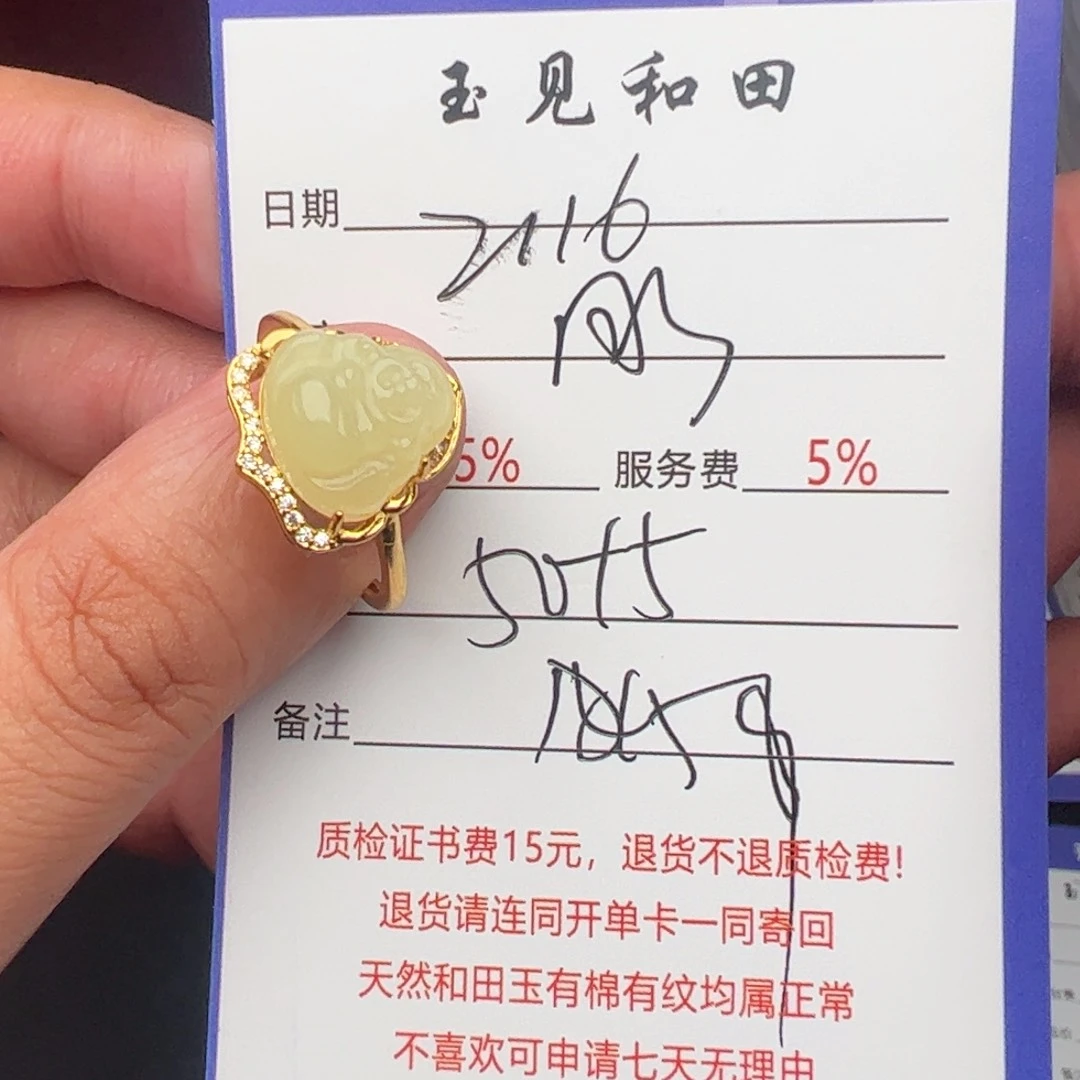 玉见和田
日期 2116
5% 服务费 5%
备注
质检证书费15元，退货不退质检费!
退货请连同开单卡一同寄回
天然和田玉有棉有纹均属正常
不喜欢可申请七天无理由